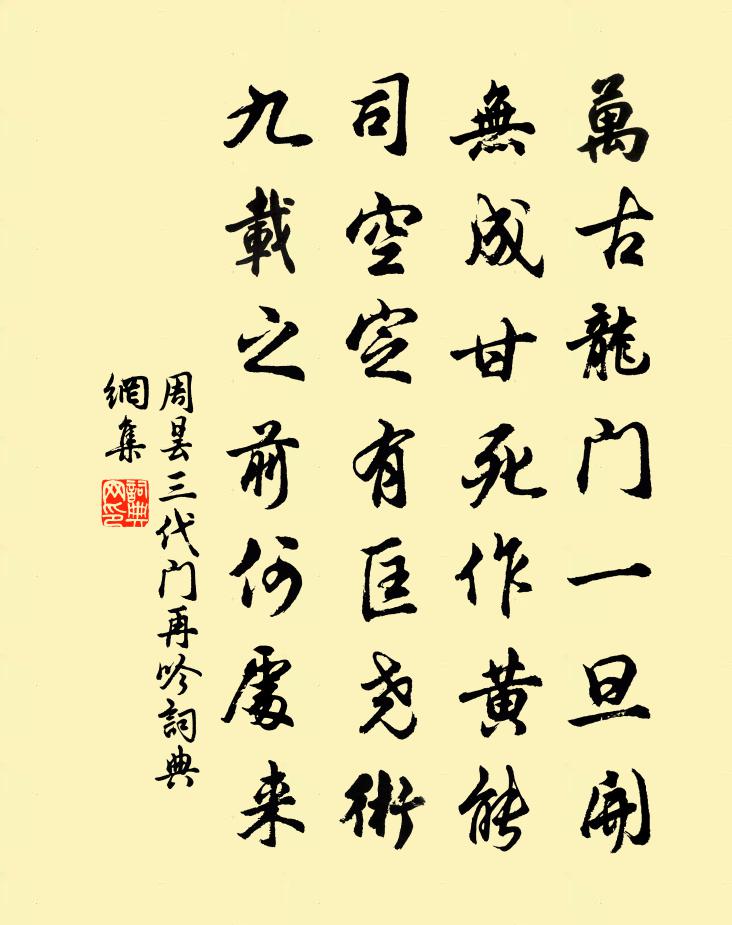 萬古龍门一旦開
無成甘死作黄能
司空定有匡尧術
九載之前何處来
周昙三代门再吟詞典
網集
詞典
网印